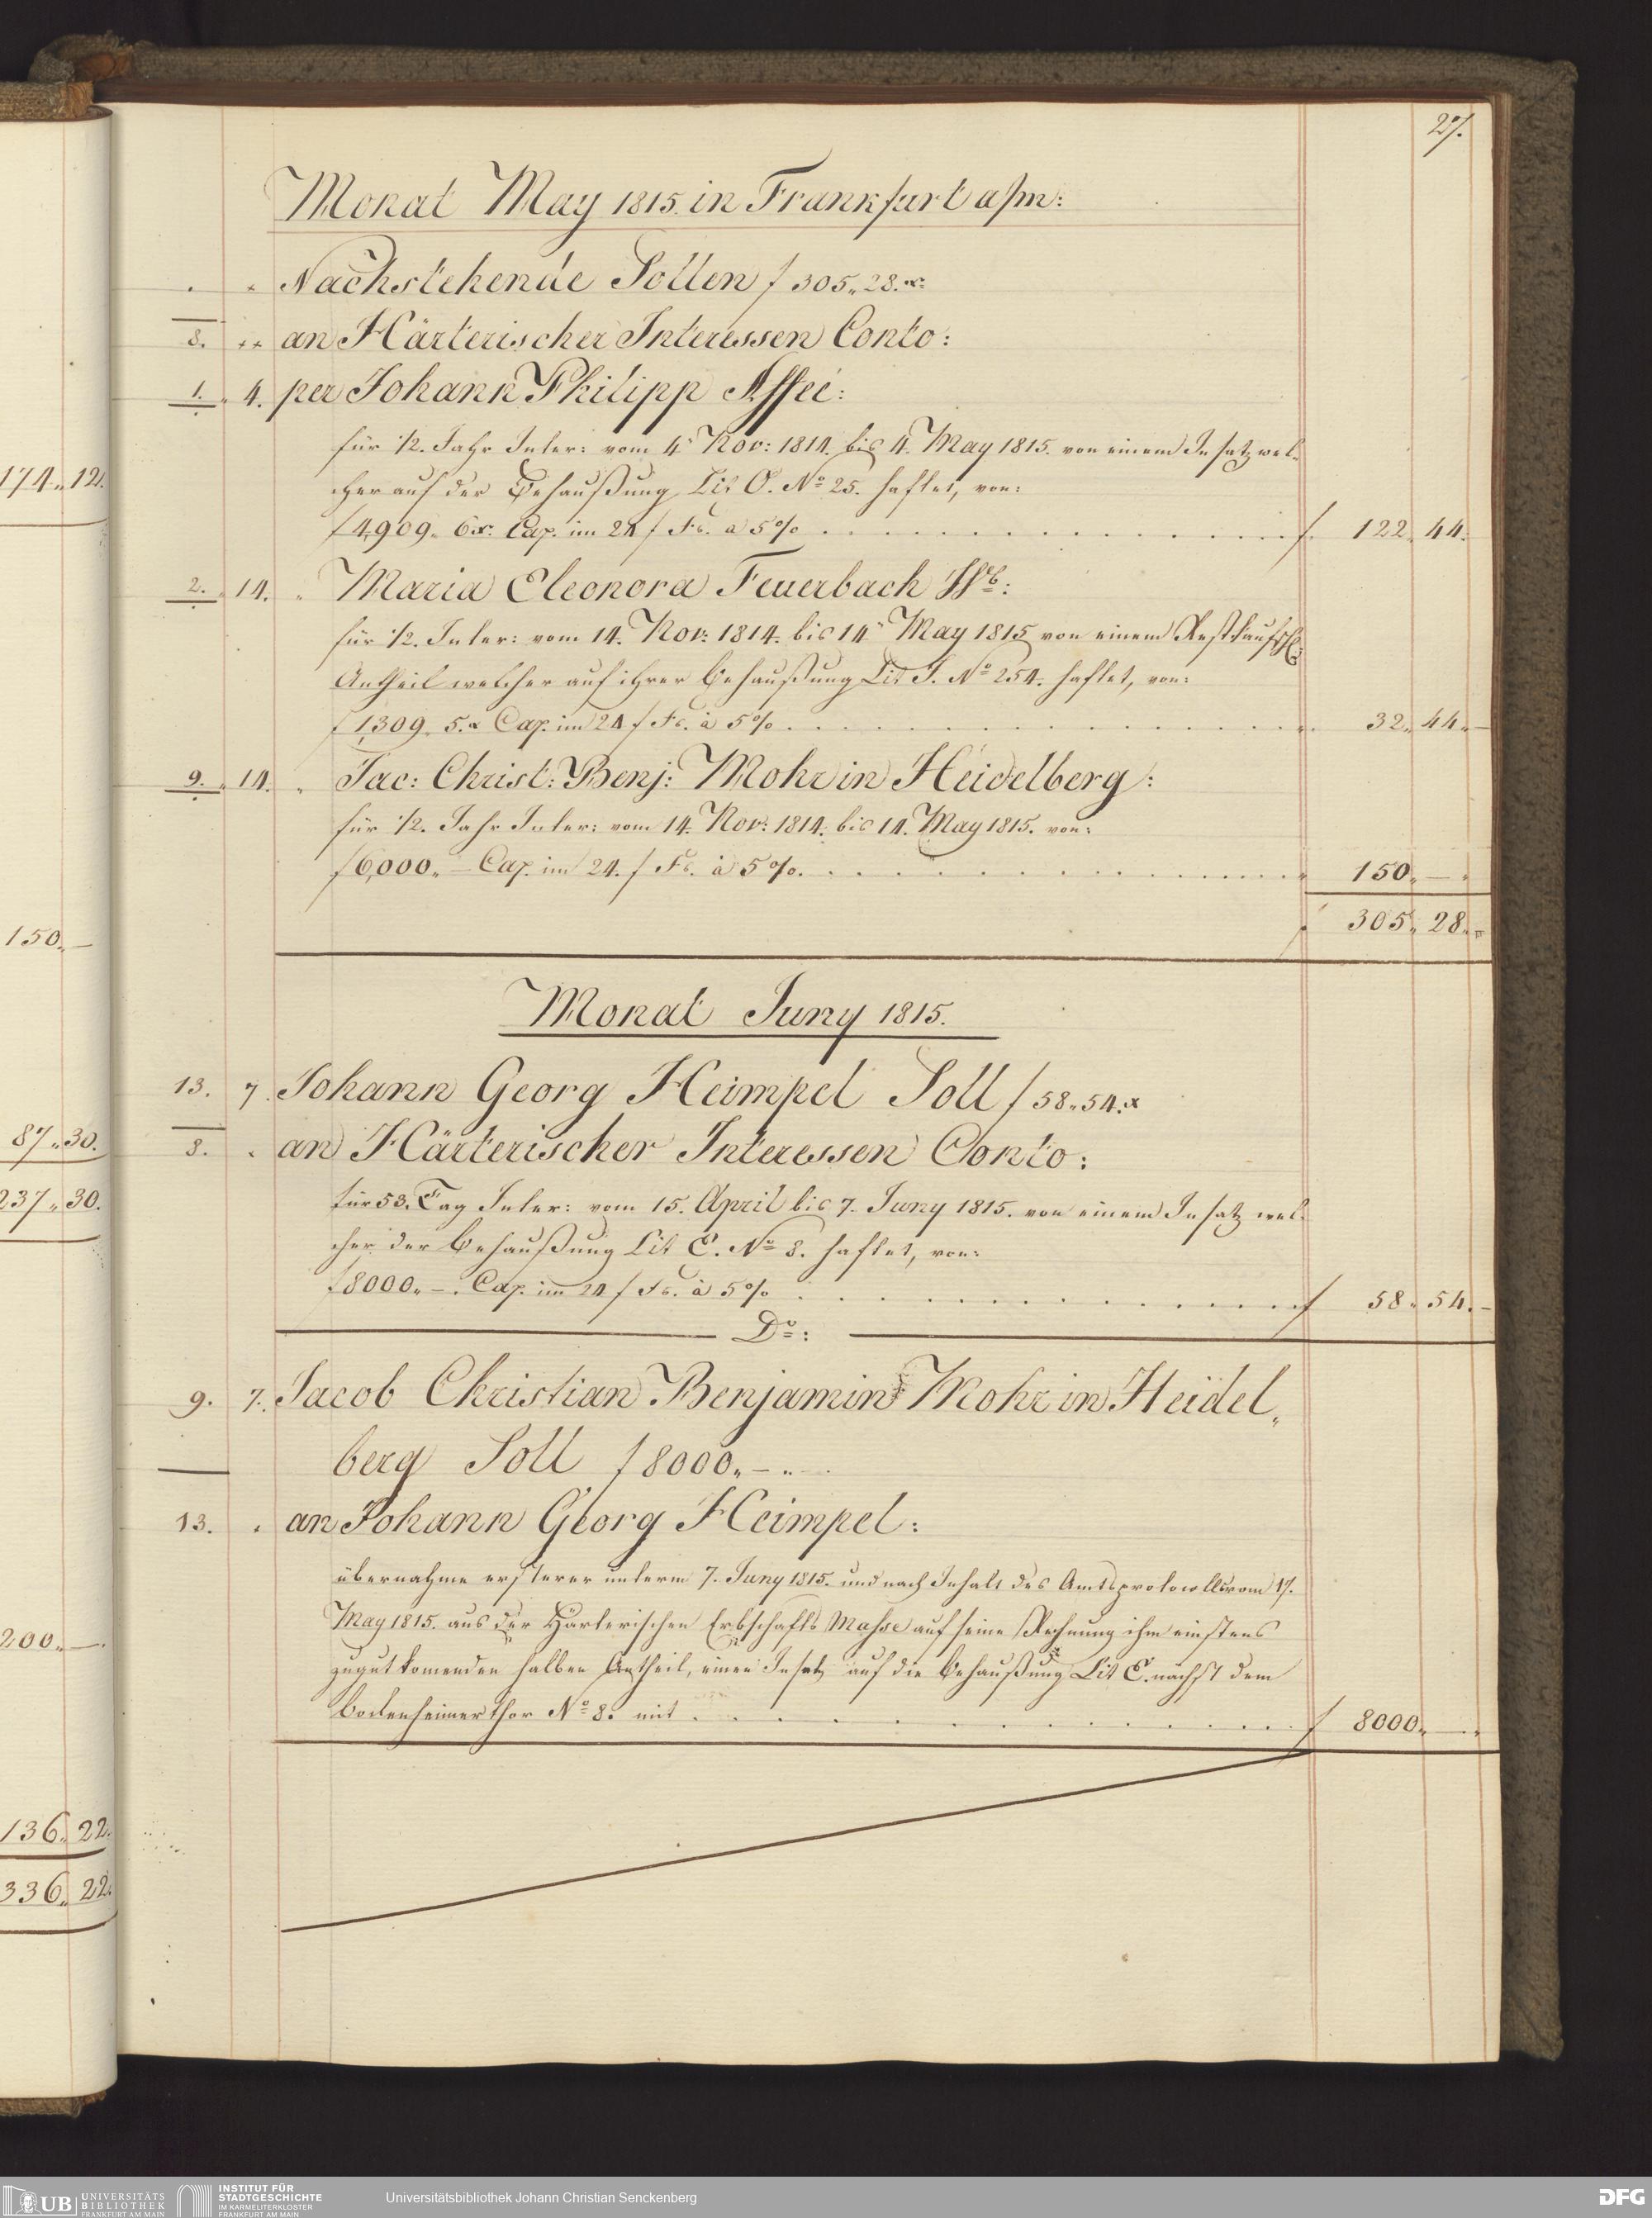 27.
Monat May 1815. in Frankfurt a/m:
Nachstehende Sollen f 305„ 28. x:
8. an Härterischer Interessen Conto:
1. 4. per Johann Philipp Affei:
für 1/2. Jahr Inter: vom 4 Nov: 1814. bis 4. May 1815. von einem Insatz wel-
cher auf der Behaußung Lit O. No 25. haftet, von:
f 4,909. 6 x. Cap. im 24 f Fs. a 5 % f. 122. 44.
2. 14. „ Maria Eleonora Feuerbach Wb:
für 1/2. Inter: vom 14. Nov: 1814. bis 14 May 1815 von einem Restkaufsch
Antheil welcher auf ihrer Behaußung Lit J. No 254. haftet, von:
f 1,309. 5. x Cap. im 24 f Fs. à 5 % 32„ 44„ —
9. 14. „ Jac: Christ: Benj: Mohr in Heidelberg:
für 1/2. Jahr Inter: vom 14. Nov: 1814. bis 14. May 1815. von:
f 6,000. — Cap. im 24. f Fs. à 5 %. 150„ —
f 305„ 28„
Monat Juny 1815.
13. 7. Johann Georg Heimpel Soll f 58„ 54. x
8. an Härterischer Interessen Conto:
für 53. Tag Inter: vom 15. April bis 7. Juny 1815. von einem Insatz wel-
cher der Behaußung Lit E. No 8. haftet, von:
f 8000. —. Cap. im 24 f Fs. à 5 % f 58„ 54. —
Do:
9. 7. Jacob Christian Benjamin Mohr in Heidel„
berg Soll f 8000„ — „
13. an Johann Georg Heimpel:
übernahme ersterer unterm 7. Juny 1815. und nach Inhalt des Amtsprotocolls vom 17.
May 1815. aus der Härterischen Erbschafts Masse auf seine Rechnung ihm einstens
zugut komenden halben Antheil, einen Insatz auf die Behaußung Lit E. nächst dem
Bockenheimer thor No 8. mit f 8000„ —
174„ 12.
150„ —
87„ 30.
237„ 30.
200„ —
136„ 22.
336„ 22.
UB UNIVERSITÄTS
BIBLIOTHEK
FRANKFURT AM MAIN
INSTITUT FÜR
STADTGESCHICHTE
IM KARMELITERKLOSTER
FRANKFURT AM MAIN
Universitätsbibliothek Johann Christian Senckenberg
DFG